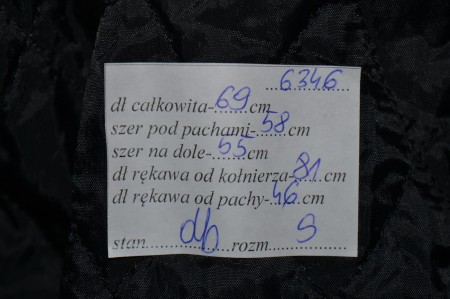 ...6346...
dł całkowita-69cm
szer pod pachami-58cm
szer na dole-55cm
dł rękawa od kołnierza-81cm
dł rękawa od pachy-46cm
stan....db....rozm....S....